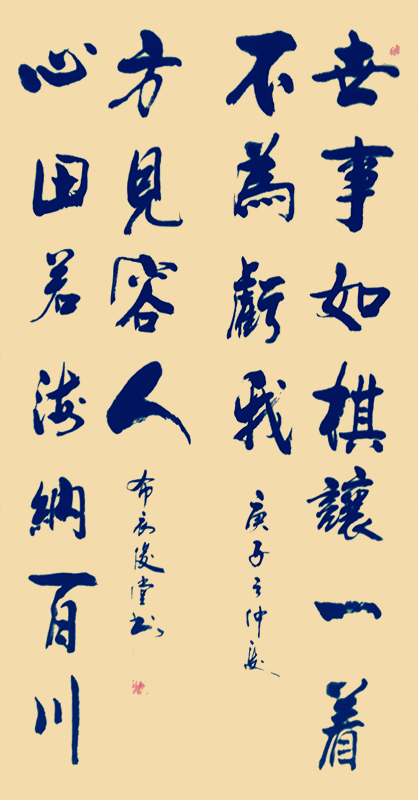 世事如棋讓一着
不為虧我
庚子之仲夏
心田若海納百川
方見容人
布衣俊堂书